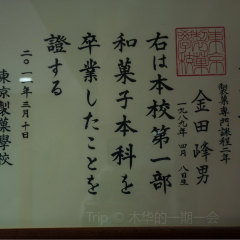 製菓専門課程二年
東京製菓學校
金田峰男
一九八九年 四月 八日生
右は本校第一部
和菓子本科を
卒業したことを
證する
二〇一 年三月十日
東京製菓學校
Trip © 木华的一期一会